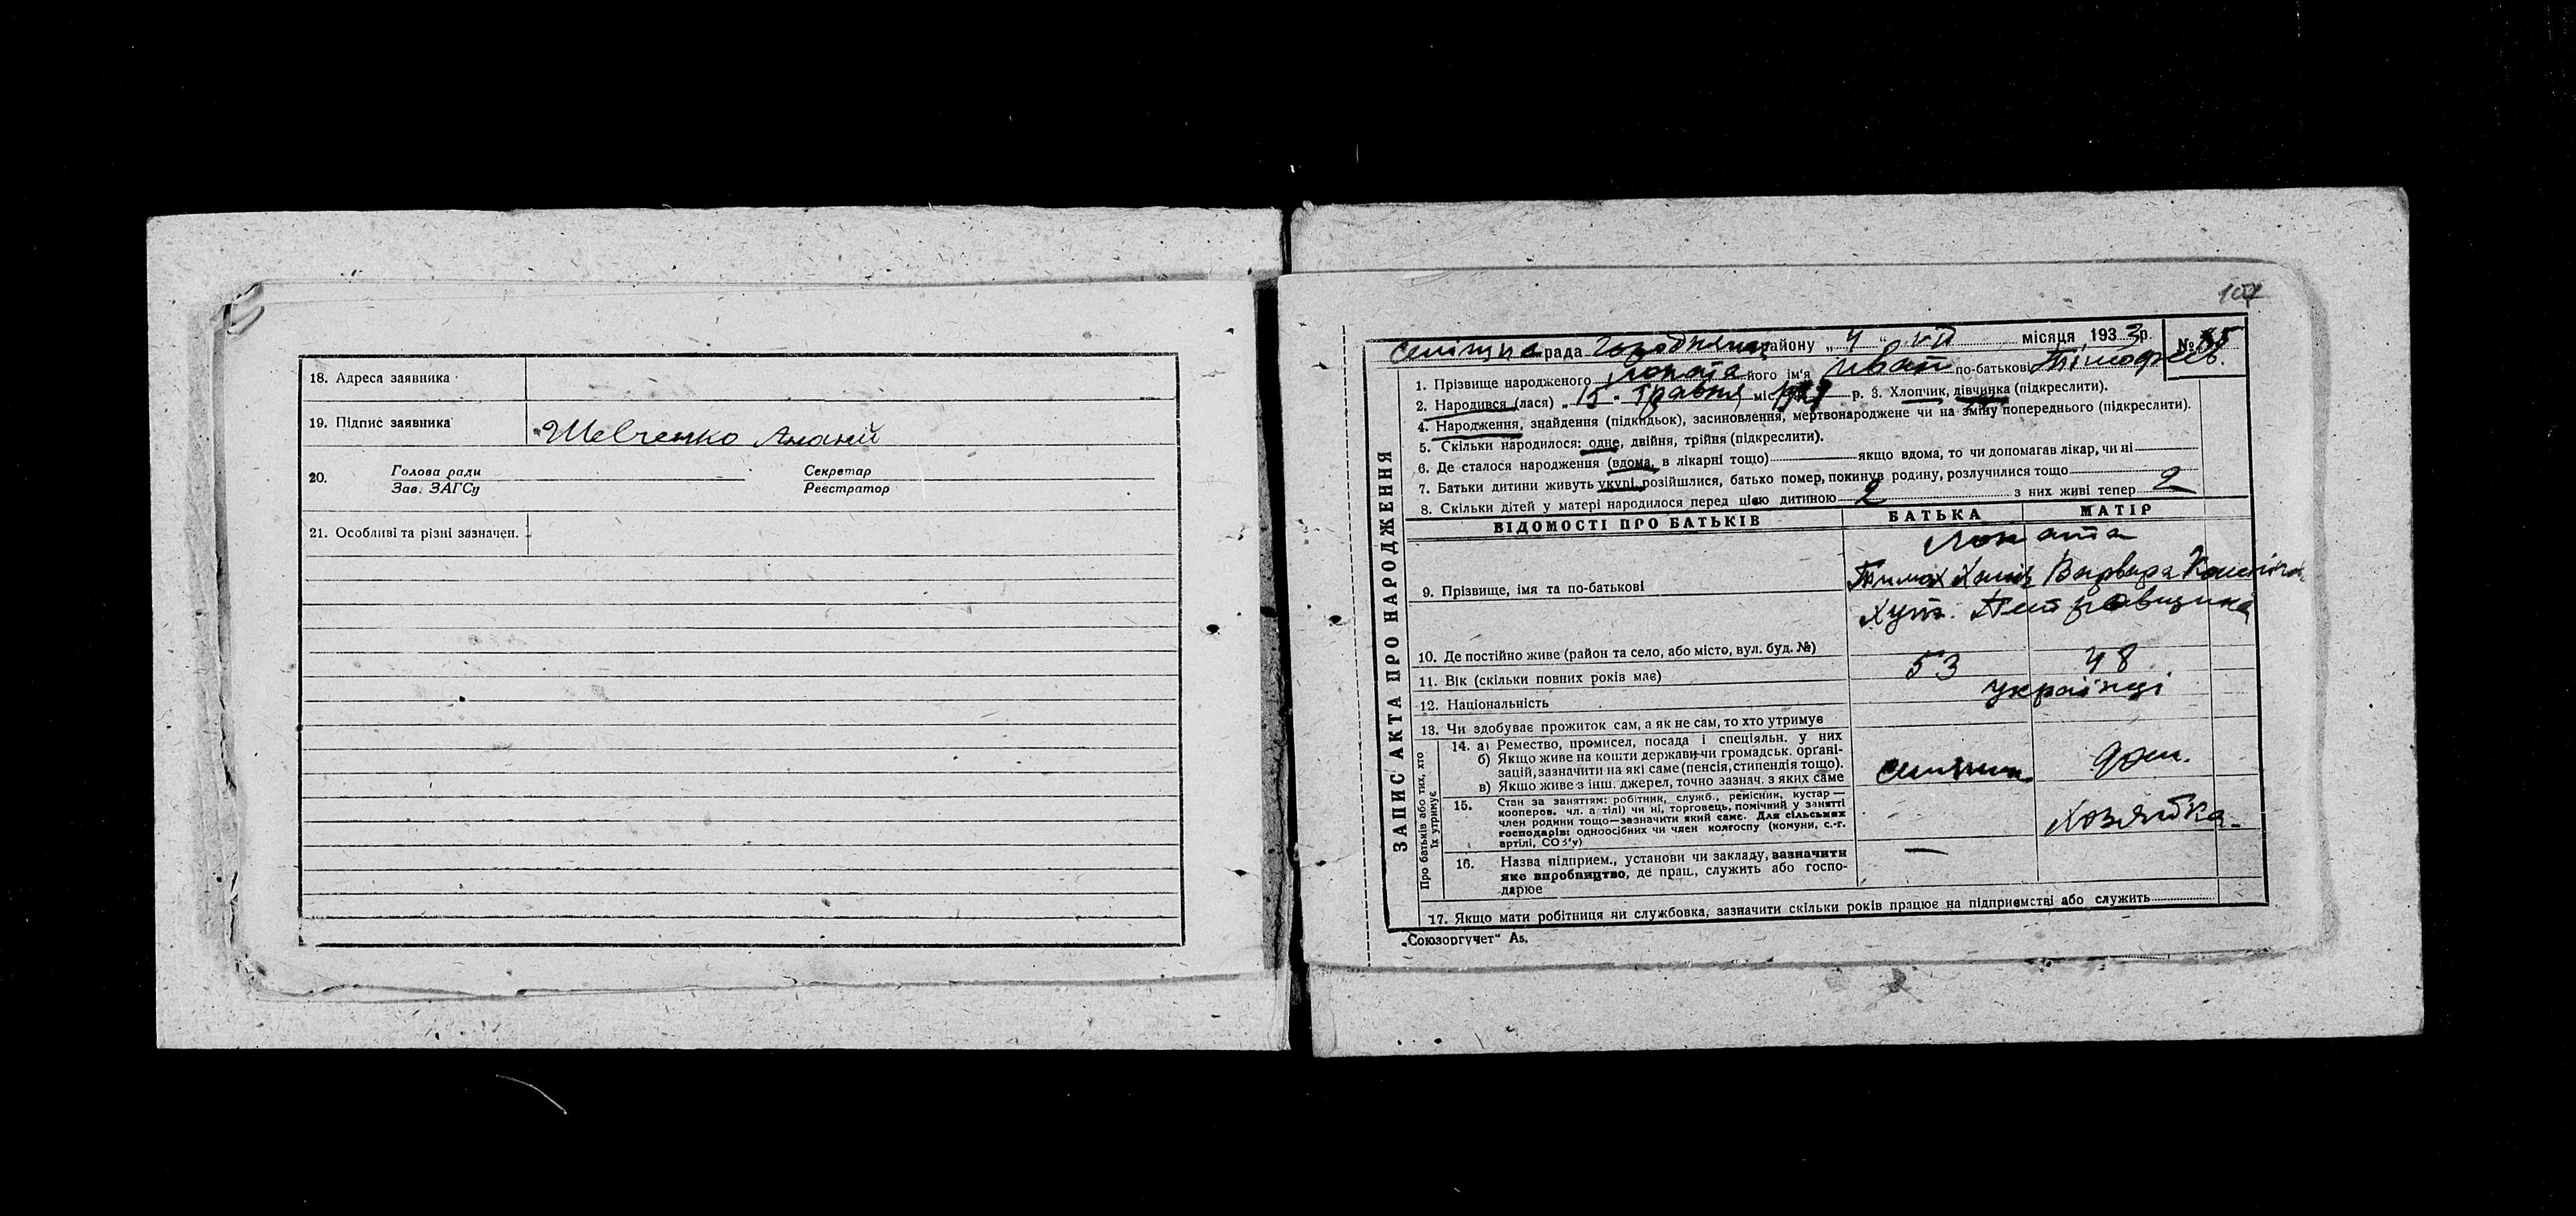 18. Адреса заявника
19. Підпис заявника Шевченко Ананій
20. Голова ради Секретар
Зав. ЗАГСу Реєстратор
21. Особливі та різні зазначен.
107
рада району „ 4 “ VII місяця, 1933 р. № 35
ЗАПИС АКТА ПРО НАРОДЖЕННЯ
1. Прізвище народженого Лопата його ім'я Иван по-батькові Тімофеєв.
2. Народився (лася) „ 15 " травня міс р. 3. Хлопчик, дівчинка (підкреслити).
4. Народження, знайдення (підкидьок), засиновлення, мертвонароджене чи на зміну попереднього (підкреслити).
5. Скільки народилося: одне, двійня, трійня (підкреслити).
6. Де сталося народження (вдома, в лікарні тощо) якщо вдома, то чи допомагав лікар, чи ні
7. Батьки дитини живуть укупі, розійшлися, батько помер, покинув родину, розлучилися тощо
8. Скільки дітей у матері народилося перед цією дитиною 2 з них живі тепер 2
ВІДОМОСТІ ПРО БАТЬКІВ БАТЬКА МАТІР
Лопата
9. Прізвище, імя та по-батькові Варвара
Хут. Петровщина
10. Де постійно живе (район та село, або місто, вул. буд. №)
11. Вік (скільки повних років має) 53 48
12. Національність українці
13. Чи здобуває прожиток сам, а як не сам, то хто утримує
Про батьків або тих, хто їх утримує
14. а) Ремество, промисел, посада і спеціяльн. у них
б) Якщо живе на кошти держави чи громадськ. органі-
зацій, зазначити на які саме (пенсія, стипендія тощо).
в) Якщо живе з інш. джерел, точно зазнач. з яких саме
дом.
15. Стан за заняттям: робітник, служб., ремісник, кустар—
кооперов. чл. артілі) чи ні, торговець, помічний у занятті
член родини тощо—зазначити який саме. Для сільських
господарів: одноосібних чи член колгоспу (комуни, с.-г.
артілі, СОЗ'у)
Хозяйка
16. Назва підприєм., установи чи закладу, зазначити —
яке виробництво, де прац., служить або госпо-
дарює
17. Якщо мати робітниця чи службовка, зазначити скільки років працює на підприємстві або служить
„Союзоргучет“ А5.